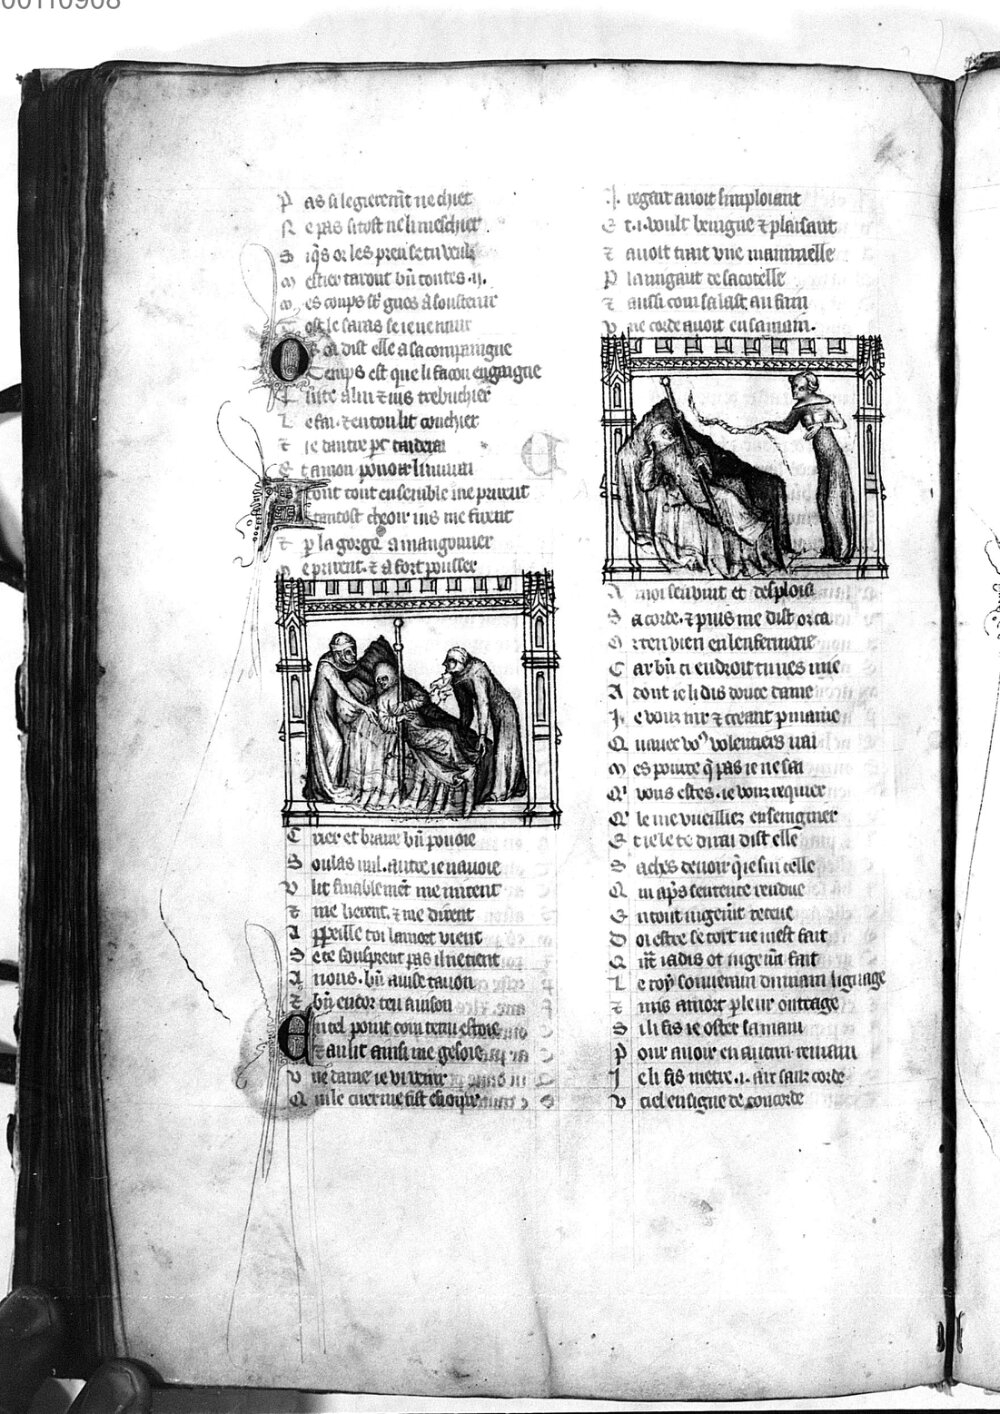 00110908
P as si legierem̄t ne chiet
R e pas si tost ne li meschiet.
S iq̄s or les preu se tu veulz
M estier tarout bn̄ toutes .ij.
M es coups st̄ gros a soustenir
T ost le saras se ie uenmir
O r ca dist elle a sa compaingne
T emps est que li facon engaigne
L uite a lui ⁊ ius trebuchier
L e fai. ⁊ en son lit couchier
⁊ ie dautre pt̄ tanderai
E t a mon pouoir li nuirai
T out tout ensemble me prirent
E tantost cheoir ius me firent
⁊ p la gorge a mangonner
M e prirent. ⁊ a fort pousser
C rier et braire bn̄ pouoie
S oulas nul. autre ie nauoie
V lit finablemēt me mirent
⁊ me lierent. ⁊ me dirent
A ppeille toi la mort vient
S e te sousprent pas il ne tient
A nous. bn̄ auise tauon
⁊ bn̄ encor ten auison
E n tel point com tenu estoie
E t au lit ainsi me gesoie
V ne dame ie vi venir
Q ui le cuer me fist esioir
J. regart auoit simploiant
E t .i. voult benigne ⁊ plaisant
⁊ auoit trait vne mammelle
P la nigaut de sa cotelle
⁊ aussi com salast au fain
V ne corde auoit en sa main.
A moi sen vint et desploia
S a corde. ⁊ puis me dist or ca
O r ten vien en lenfermerie
C ar bn̄ ci endroit tu nes mie
A dont ie li dis douce dame
J e vous iur ⁊ creant p mame
Q uauec vo⁹ volentiers irai
M es pource q̄ pas ie ne sai
Q' vous estes. ie vous requier
Q' le me vueilliez enseignier
E t ie le te dirai dist elle
S aches deuoir q̄ ie sui celle
Q ui ap̄s sentence rendue
E n tout iugem̄t receue
D oi estre se tort ne mest fait
Q n̄t iadis ot iugem̄t fait
L e roy souuerain dumain lignage
⁊ mis a mort p leur outrage
S i li fis ie oster sa main
P our auoir en aucun remain
J e li fis metre .i. arc sanz corde
V ciel en signe de concorde